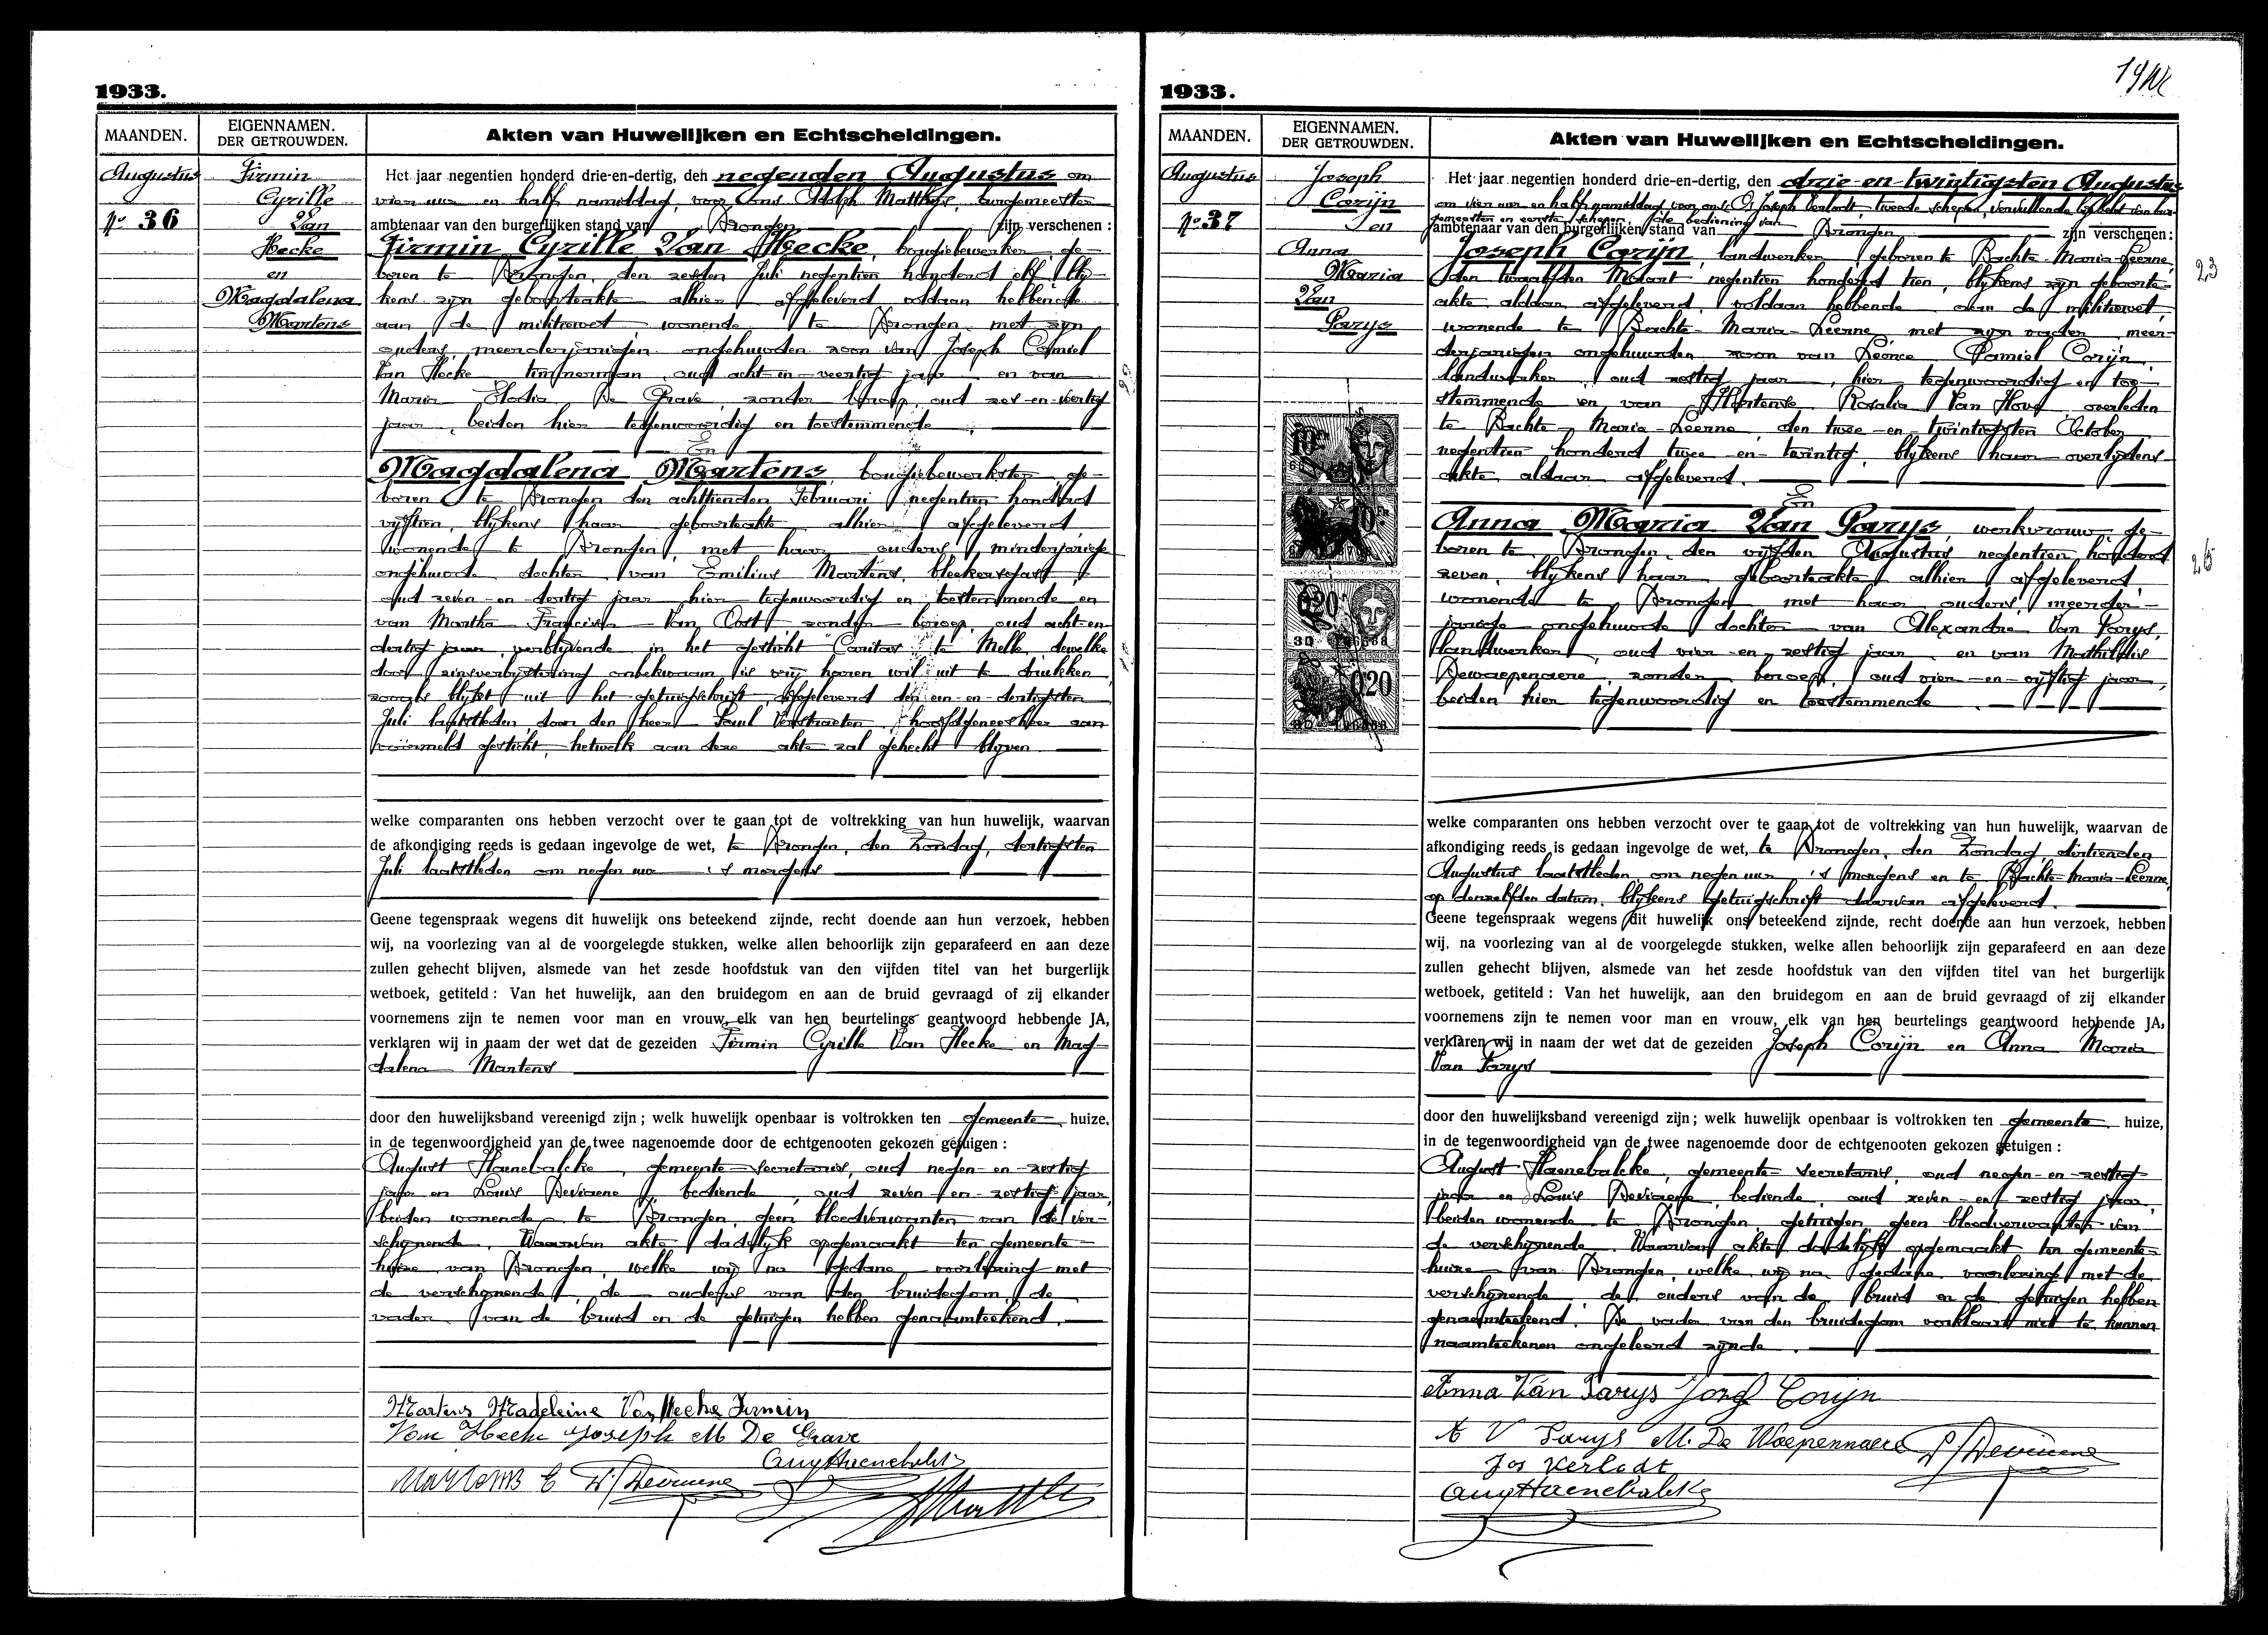 1933.
MAANDEN.
EIGENNAMEN.
DER GETROUWDEN.
Akten van Huwelijken en Echtscheidingen.
Augustus
No 36
Firmin
Cyrille
Van
Hecke
en
Magdalena
Martens
Het jaar negentien honderd drie-en-dertig, den negenden Augustus om
vier uur en half namiddag, voor Ons Adolph Matthys, burgemeester
ambtenaar van den burgerlijken stand van Drongen zijn verschenen :
Firmin Cyrille Van Hecke, bougiebewerker, ge-
boren te Drongen, den zesden Juli negentien honderd elf, blij-
kens zijn geboorteakte alhier afgeleverd, voldaan hebbende
aan de militiewet, wonende te Drongen met zijn
ouders, meerderjarigen ongehuwden zoon van Joseph Camiel
Van Hecke, timmerman, oud acht-en-veertig jaar en van
Maria Elodia De Grave, zonder beroep, oud zes-en-veertig
jaar, beiden hier tegenwoordig en toestemmende
En
Magdalena Martens, bougiebewerkster, ge-
boren te Drongen den achttienden Februari negentien honderd
vijftien, blijkens haar geboorteakte alhier afgeleverd,
wonende te Drongen, met haar ouders, minderjarige
ongehuwde dochter van Emilius Martens, bleekersgast,
oud zeven-en-dertig jaar hier tegenwoordig en toestemmende en
van Martha Francisca Van Oost zonder beroep, oud acht-en-
dertig jaar, verblijvende in het gesticht "Caritas" te Melle, dewelke
door zinsverbijstering onbekwaam is vrij haren wil uit te drukken,
zooals blijkt uit het getuigschrift, afgeleverd den een-en-dertigsten
Juli laatstleden, door den heer Paul Verstraeten, hoofdgeneesheer aan
voormeld gesticht, hetwelk aan deze akte zal gehecht blijven
welke comparanten ons hebben verzocht over te gaan tot de voltrekking van hun huwelijk, waarvan
de afkondiging reeds is gedaan ingevolge de wet, te Drongen, den Zondag, dertigsten
Juli laatstleden om negen uur 's morgens
Geene tegenspraak wegens dit huwelijk ons beteekend zijnde, recht doende aan hun verzoek, hebben
wij, na voorlezing van al de voorgelegde stukken, welke allen behoorlijk zijn geparafeerd en aan deze
zullen gehecht blijven, alsmede van het zesde hoofdstuk van den vijfden titel van het burgerlijk
wetboek, getiteld : Van het huwelijk, aan den bruidegom en aan de bruid gevraagd of zij elkander
voornemens zijn te nemen voor man en vrouw, elk van hen beurtelings geantwoord hebbende JA,
verklaren wij in naam der wet dat de gezeiden Firmin Cyrille Van Hecke en Mag-
dalena Martens
door den huwelijksband vereenigd zijn ; welk huwelijk openbaar is voltrokken ten gemeente huize,
in de tegenwoordigheid van de twee nagenoemde door de echtgenooten gekozen getuigen :
August Haenebalcke, gemeente-secretaris, oud negen-en-zestig
jaar en Louis Deviaene, bediende, oud zeven-en-zestig jaar,
beiden wonende te Drongen, geen bloedverwanten van de ver-
schijnende. Waarvan akte dadelijk opgemaakt ten gemeente-
huize van Drongen, welke wij na gedane voorlezing met
de verschijnende, de ouders van den bruidegom, de
vader van de bruid en de getuigen hebben genaamteekend.
Martens Madeleine Van Hecke Firmin
Van Hecke Joseph M De Grave
Aug Haenebalcke
Martens E L. Deviaene
1933.
MAANDEN.
EIGENNAMEN.
DER GETROUWDEN.
Akten van Huwelijken en Echtscheidingen.
Augustus
No 37
Joseph
Corijn
en
Anna
Maria
Van
Parys
Het jaar negentien honderd drie-en-dertig, den drie-en-twintigsten Augustus
om vier uur en half namiddag voor ons, Joseph Verlodt, tweede schepen, vervullende bij belet van bur-
gemeester en eersten schepen, de bediening van
ambtenaar van den burgerlijken stand van Drongen zijn verschenen :
Joseph Corijn, landwerker, geboren te Bachte-Maria-Leerne,
den twaalfden Maart negentien honderd tien, blijkens zijn geboorte-
akte aldaar afgeleverd, voldaan hebbende aan de militiewet,
wonende te Bachte-Maria-Leerne met zijn vader, meer-
derjarigen ongehuwden zoon van Leonce Camiel Corijn,
landwerker, oud zestig jaar, hier tegenwoordig en toe-
stemmende en van Hortense Rosalia Van Hove, overleden
te Bachte-Maria-Leerne, den twee-en-twintigsten October
negentien honderd twee-en-twintig, blijkens haar overlijdens-
akte aldaar afgeleverd.
En
Anna Maria Van Parys, werkvrouw, ge-
boren te Drongen, den vijfden Augustus negentien honderd
zeven, blijkens haar geboorteakte alhier afgeleverd
wonende te Drongen met haar ouders, meerder-
jarige ongehuwde dochter van Alexandre Van Parys,
landwerker, oud vier-en-zestig jaar en van Mathildis
Dewaepenaere, zonder beroep, oud vier-en-vijftig jaar,
beiden hier tegenwoordig en toestemmende.
23
26
welke comparanten ons hebben verzocht over te gaan tot de voltrekking van hun huwelijk, waarvan de
afkondiging reeds is gedaan ingevolge de wet, te Drongen, den Zondag, dertienden
Augustus laatstleden, om negen uur 's morgens en te Bachte-Maria-Leerne,
op denzelfden datum, blijkens getuigschrift daarvan afgeleverd.
Geene tegenspraak wegens dit huwelijk ons beteekend zijnde, recht doende aan hun verzoek, hebben
wij, na voorlezing van al de voorgelegde stukken, welke allen behoorlijk zijn geparafeerd en aan deze
zullen gehecht blijven, alsmede van het zesde hoofdstuk van den vijfden titel van het burgerlijk
wetboek, getiteld : Van het huwelijk, aan den bruidegom en aan de bruid gevraagd of zij elkander
voornemens zijn te nemen voor man en vrouw, elk van hen beurtelings geantwoord hebbende JA,
verklaren wij in naam der wet dat de gezeiden Joseph Corijn en Anna Maria
Van Parys
door den huwelijksband vereenigd zijn ; welk huwelijk openbaar is voltrokken ten gemeente huize,
in de tegenwoordigheid van de twee nagenoemde door de echtgenooten gekozen getuigen :
August Haenebalcke, gemeente secretaris, oud negen-en-zestig
jaar en Louis Deviaene, bediende, oud zeven-en-zestig jaar,
beiden wonende te Drongen, getuigen, geen bloedverwanten van
de verschijnende. Waarvan akte dadelijk opgemaakt ten gemeente-
huize van Drongen, welke wij na gedane voorlezing met de
verschijnende, de ouders van de bruid en de getuigen hebben
genaamteekend. De vader van den bruidegom verklaart niet te kunnen
naamteekenen ongeleerd zijnde.
Anna Van Parys Jozef Corijn
A V Parys M. De Waepennaere L. Deviaene
Jos Verlodt
Aug Haenebalcke